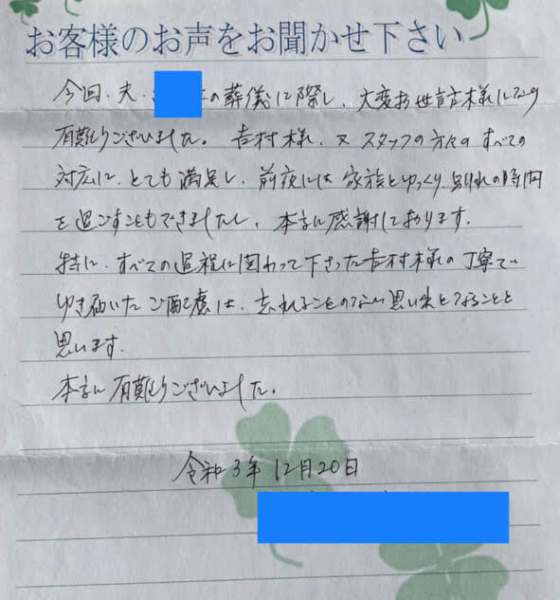 お客様のお声をお聞かせ下さい
今回、夫、の葬儀に際し、大変お世話様になり
有難うございました。吉村様、又スタッフの方々のすべての
対応に、とても満足し、前夜には家族とゆっくり、別れの時間
を過ごすこともできましたし、本当に感謝しております。
特に、すべての過程に関わって下さった吉村様の丁寧で
ゆき届いたご配慮は、忘れることのない思い出となることと
思います。
本当に有難うございました。
令和3年12月20日